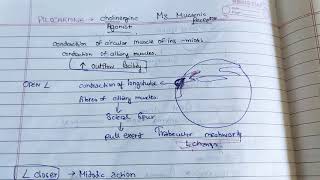 PILOCARPINE → cholinergic M3 Muscarinic
agonist Receptor
contraction of circular muscle of iris - miosis
contraction of ciliary muscles.
↑ outflow facility
OPEN L contraction of longitudinal
fibres of ciliary muscles.
↓
Scleral Spur
↓
pull exert Trabecular meshwork
L closed → Miotic action